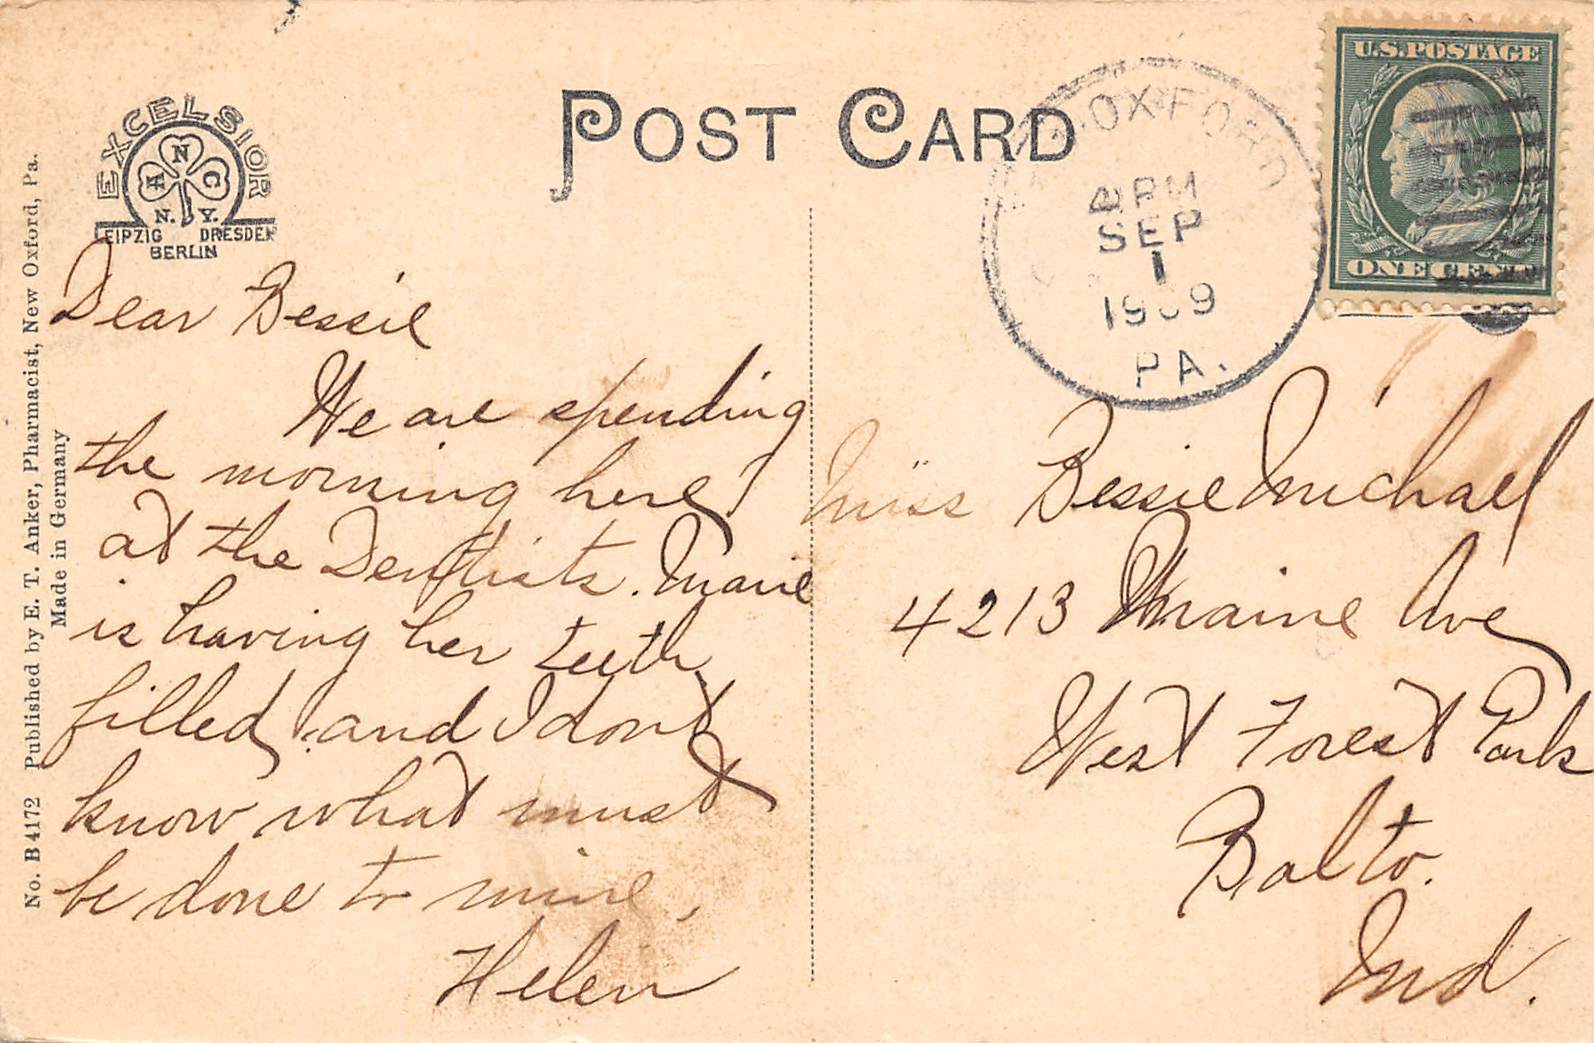 EXCELSIOR
A N C
N. Y.
LEIPZIG DRESDEN
BERLIN
POST CARD
OXFORD
4 PM
SEP
1
1909
PA.
U.S. POSTAGE
ONE CENT
No. B 4172 Published by E. T. Anker, Pharmacist, New Oxford, Pa.
Made in Germany
Dear Bessie
We are spending
the morning here
at the Dentists. Marie
is having her teeth
filled, and I dont
know what must
be done to mine,
Helen
Miss Bessie Michael
4213 Maine Ave
West Forest Park
Balto.
Md.